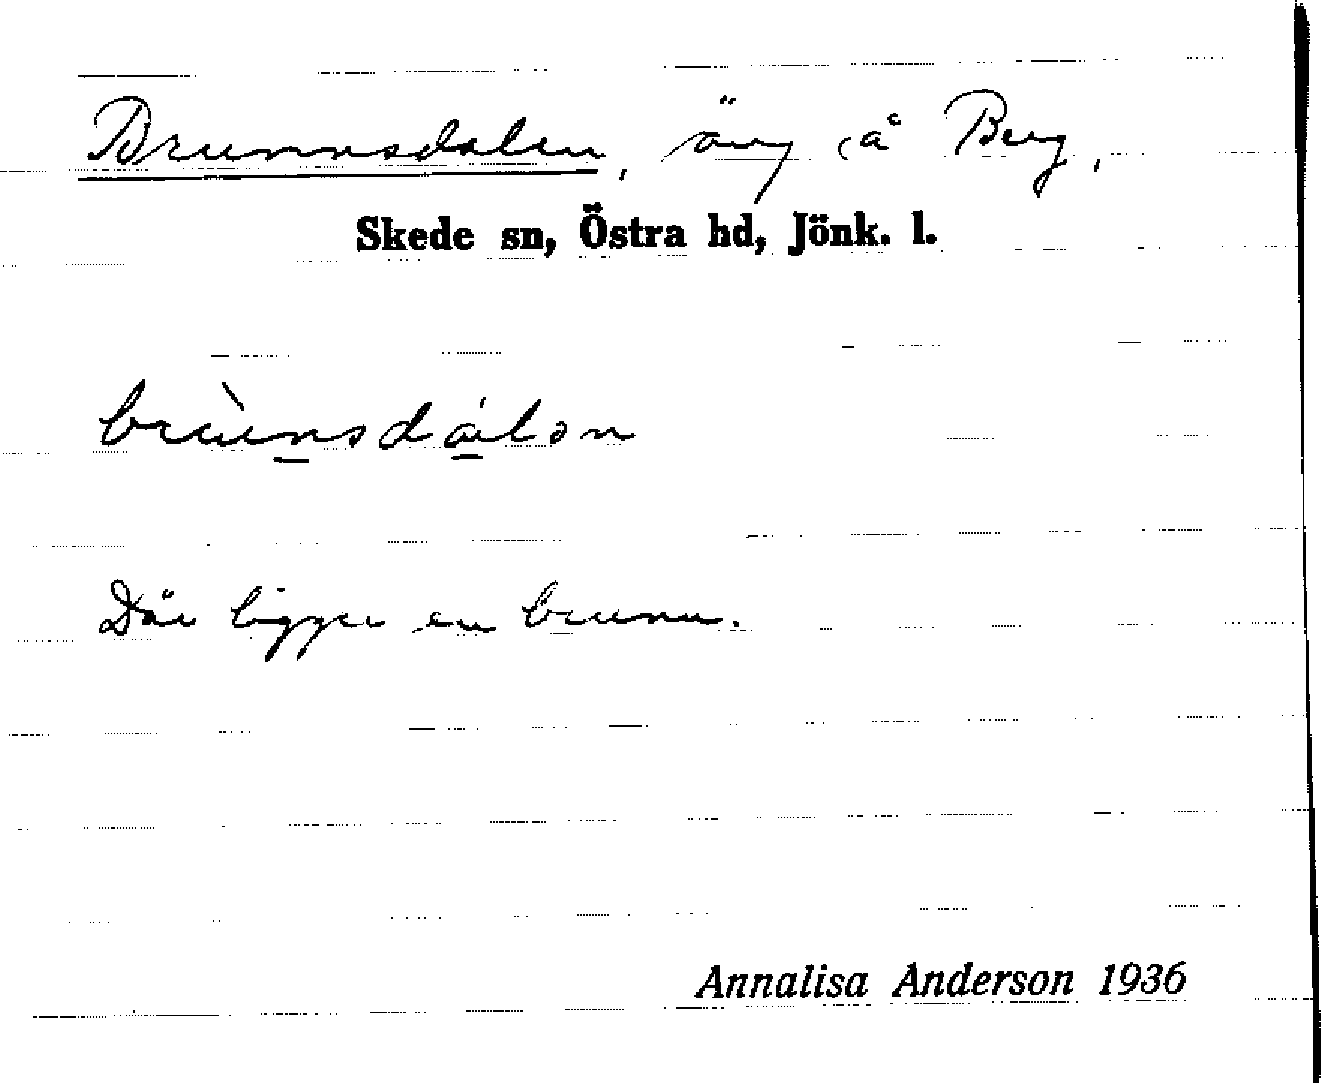 Brunnsdalen, äng på Berg,
Skede sn, Östra hd, Jönk. l.
brùn̲sdá̲lən
Där ligger en brunn.
Annalisa Anderson 1936